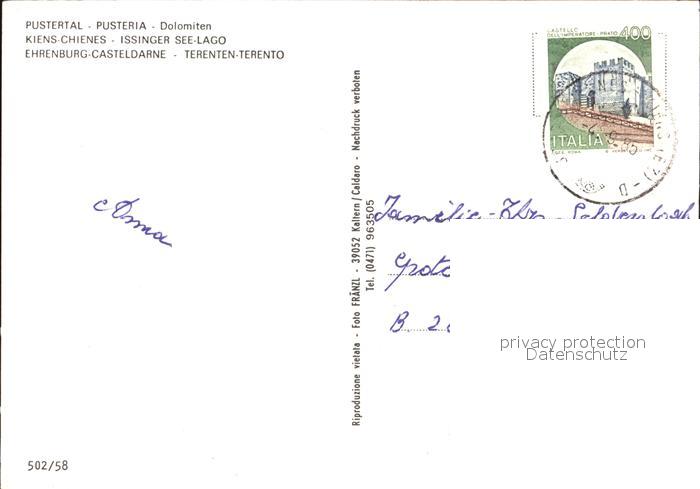 PUSTERTAL - PUSTERIA - Dolomiten
KIENS-CHIENES - ISSINGER SEE-LAGO
EHRENBURG-CASTELDARNE - TERENTEN-TERENTO
CASTELLO
DELL'IMPERATORE - PRATO
400
ITALIA
Oma
Familie
B. 2.
Riproduzione vietata - Foto FRÄNZL - 39052 Kaltern/Caldaro - Nachdruck verboten
Tel. (0471) 963505
privacy protection
Datenschutz
502/58